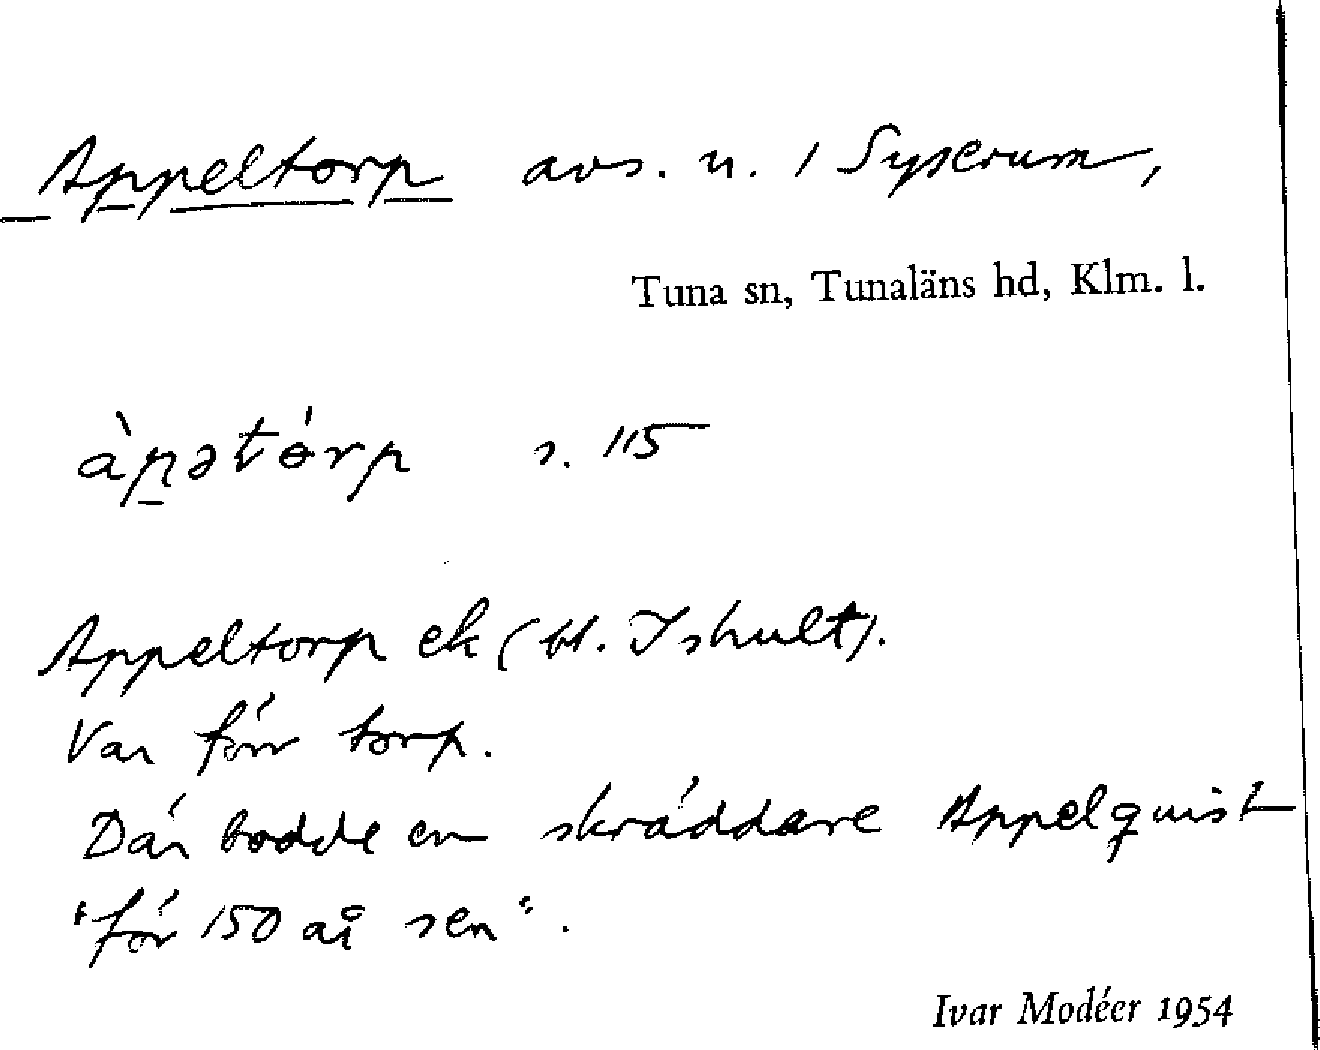 Appeltorp avs. u. / Syserum,
Tuna sn, Tunaläns hd, Klm. l.
àpətórp s. 115
Appeltorp ek (bl. Ishult).
Var förr torp.
Där bodde en skräddare Appelquist
"för 150 år sen".
Ivar Modéer 1954